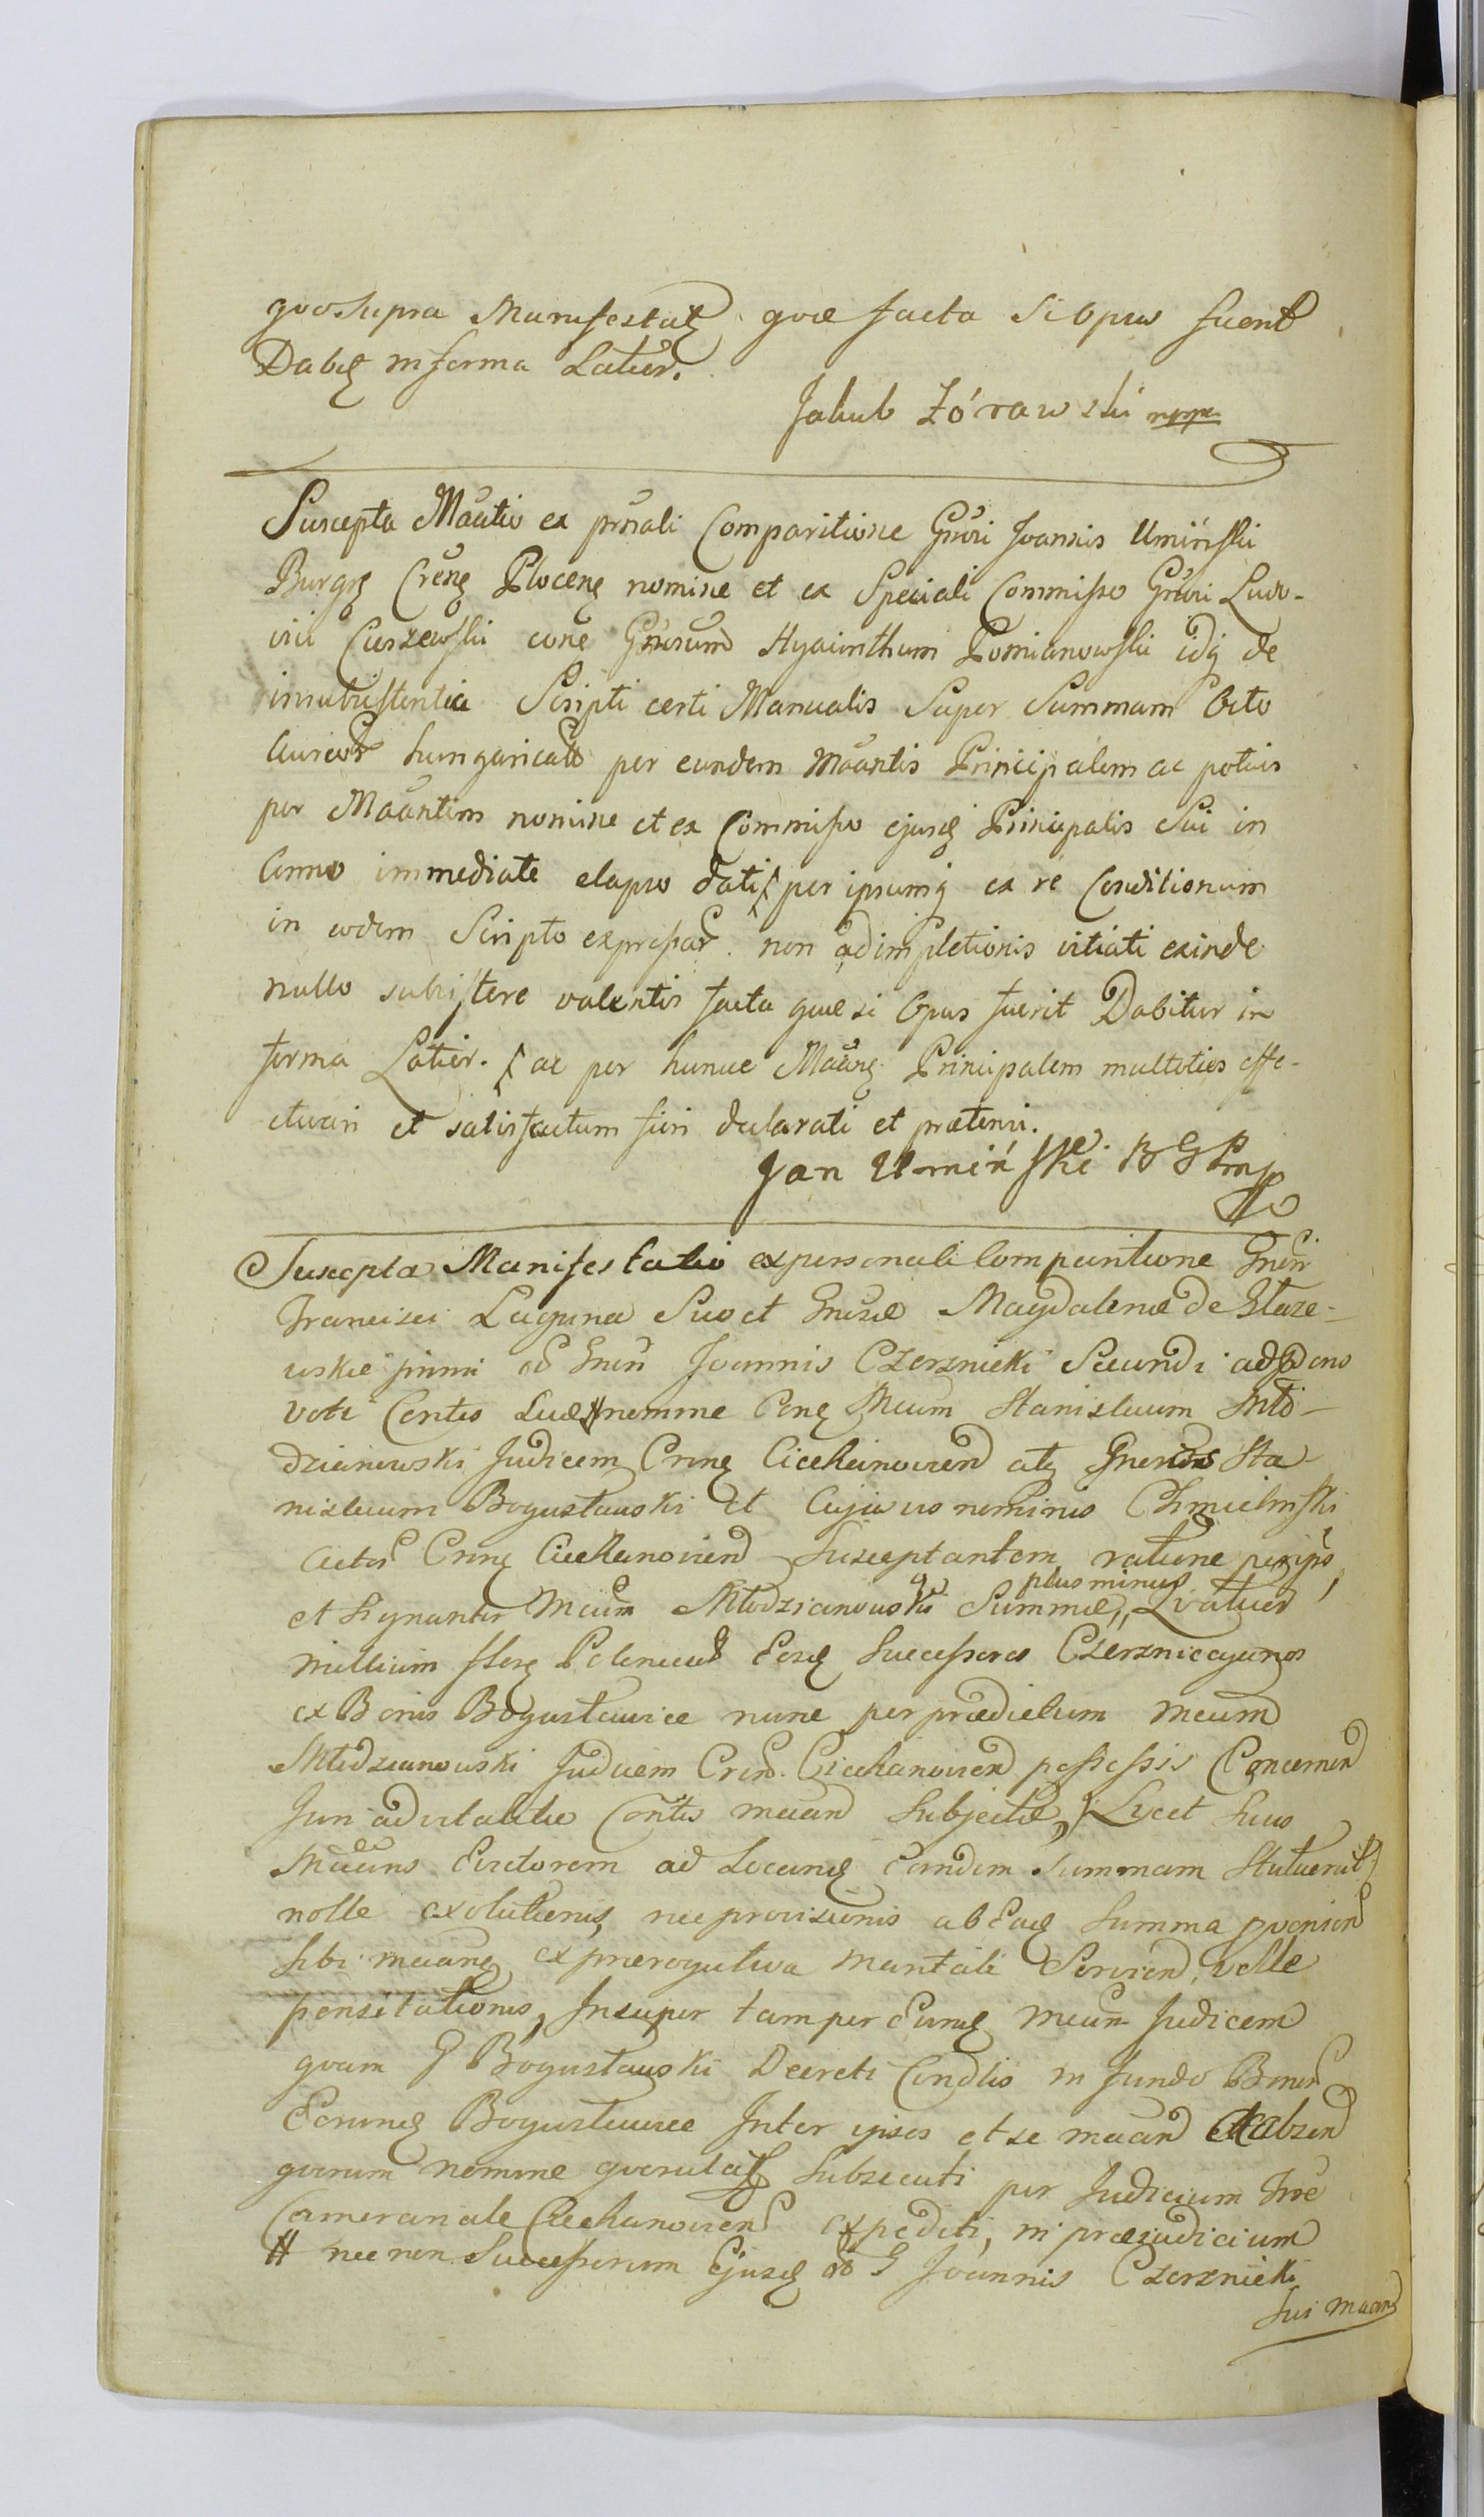 quo supra Manifestatę quae facta si opus fuerit
Dabię in forma Latior.
Jakub Zórawski mpp
Suscepta Maatio ex prsnali Comparitione Gnrsi Joannis Umiński
Burgę Crenę Plocenę nomine et ex Speciali Commisso Gnrsi Ludo-
vici Cieszewski conę Gnrsum Hyacinthum Pomianowski idq de
insubsistentia Scripti certi Manualis Super Summam Octo
Aureor hungarical per eundem Maantis Principalem ac potius
per Maantem nomine et ex Commisso ejusd Principalis Sui in
Anno immediate elapso dati per ipsumq ex re Conditionum
in eodem Scripto expressar. non adimpletionis vitiati exinde
nullo subsistere valentis facta quae si Opus fuerit Dabitur in
forma Latior. ac per hunue Maanę Principalem multoties effe-
ctuari et satisfactum fieri declarati et praetensi.
Jan Umiński B G P mp
Suscepta Manifestatio ex personali Comparitione Gnrsi
Francisci Laguna Suo et Gnrsae Magdalenae de Staze-
wskie primi ad Gnrsi Joannis Czerznicki Secundi adhaens
voti Contis Suae # nomine Conę Mcum Stanislaum Mło-
dzianowski Judicem Crenę Ciechanovien atq Gnrsos Sta-
nislaum Bogusławski et Cujuvis nominis Chmielinski
Actor Crenę Ciechanovien Susceptantem ratione percips
et signanter Mcum Młodzianowski Summae, plus minus Quatuor
millium florę Polonical Eosd Successores Czerznicayanos
ex Bonis Bogusławice nunc per praedictum Mcum
Młodzianowski Judicem Cren. Ciechanovien possessis Concernen
Juri advitalitio Contis maan Subjectae, Licet Suus
Maans Eictorem ad Locand Eandem Summam Statuerat
nolle exolutionis, nec provisionis ab Ead Summa provenien
sibi maanę ex praerogativa maritali Servien, velle
pensitationis, Insuper tam per Eund Mcum Judicem
quam G Bogusławski Decreti Condlis in fundo Bonor
Eorund Bogusławice Inter ipsos et se maan et absen
quorum nomine queruląß Subsecuti per Judicium Trre
Camerariale Ciechanovien expediti, in praejudicium
# nec non Successorum Ejusd od G Joannis Czerznicki
sui maan